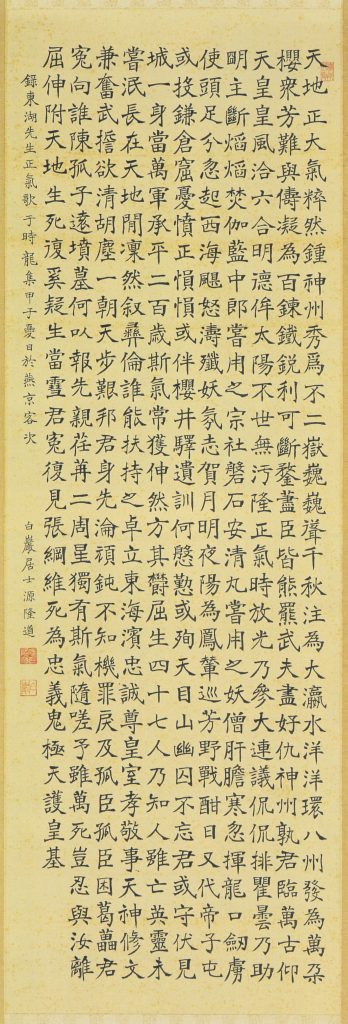 天地正大氣粹然鍾神州秀爲不二嶽巍巍聳千秋注為大瀛水洋洋環八州發為萬朶
櫻衆芳難與儔凝為百鍊鐵銳利可斷鍪藎臣皆熊羆武夫盡好仇神州孰君臨萬古仰
天皇皇風洽六合明德侔太陽不世無污隆正氣時放光乃參大連議侃侃排瞿曇乃助
明主斷焰焰焚伽藍中郎嘗用之宗社磐石安清丸嘗用之妖僧肝膽寒忽揮龍口劒虜
使頭足分忽起西海颶怒濤殲妖氛志賀月明夜陽為鳳輦巡芳野戰酣日又代帝子屯
或投鎌倉窟憂憤正愪愪或伴櫻井驛遺訓何慇懃或殉天目山幽囚不忘君或守伏見
城一身當萬軍承平二百歲斯氣常獲伸然方其欝屈生四十七人乃知人雖亡英靈未
嘗泯長在天地間凜然叙彝倫誰能扶持之卓立東海濱忠誠尊皇室孝敬事天神修文
兼奮武誓欲清胡塵一朝天步艱邦君身先淪頑鈍不知機罪戾及孤臣孤臣困葛藟君
冤向誰陳孤子遠墳墓何以報先親荏苒二周星獨有斯氣隨嗟予雖萬死豈忍與汝離
屈伸附天地生死復奚疑生當雪君冤復見張綱維死為忠義鬼極天護皇基
錄東湖先生正氣歌于時龍集甲子夏日於燕京客次
白巖居士源隆道